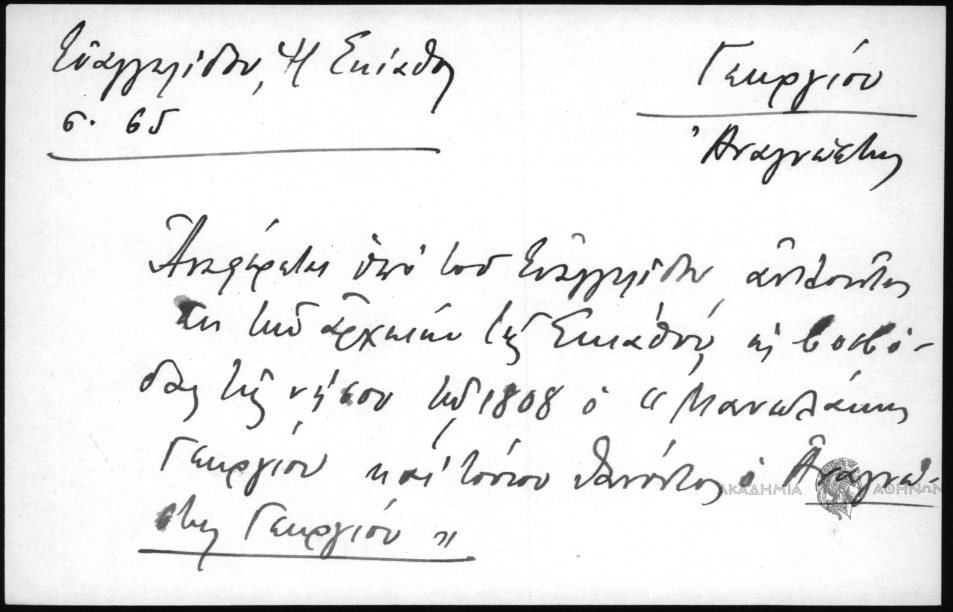 Εὐαγγελίδου, Ἡ Σκίαθος
σ. 65
Γεωργίου
Ἀναγνώστης
Ἀναφέρεται ὑπὸ τοῦ Εὐαγγελίδου ἀντλοῦντος
ἐκ τοῦ ἀρχείου τῆς Σκιάθου, ὡς βοεβό-
δας τῆς νήσου τῷ 1808 ὁ "Μανωλάκης
Γεωργίου καὶ τούτου θανόντος ὁ Ἀναγνώ-
στης Γεωργίου"
ΑΚΑΔΗΜΙΑ ΑΘΗΝΩΝ